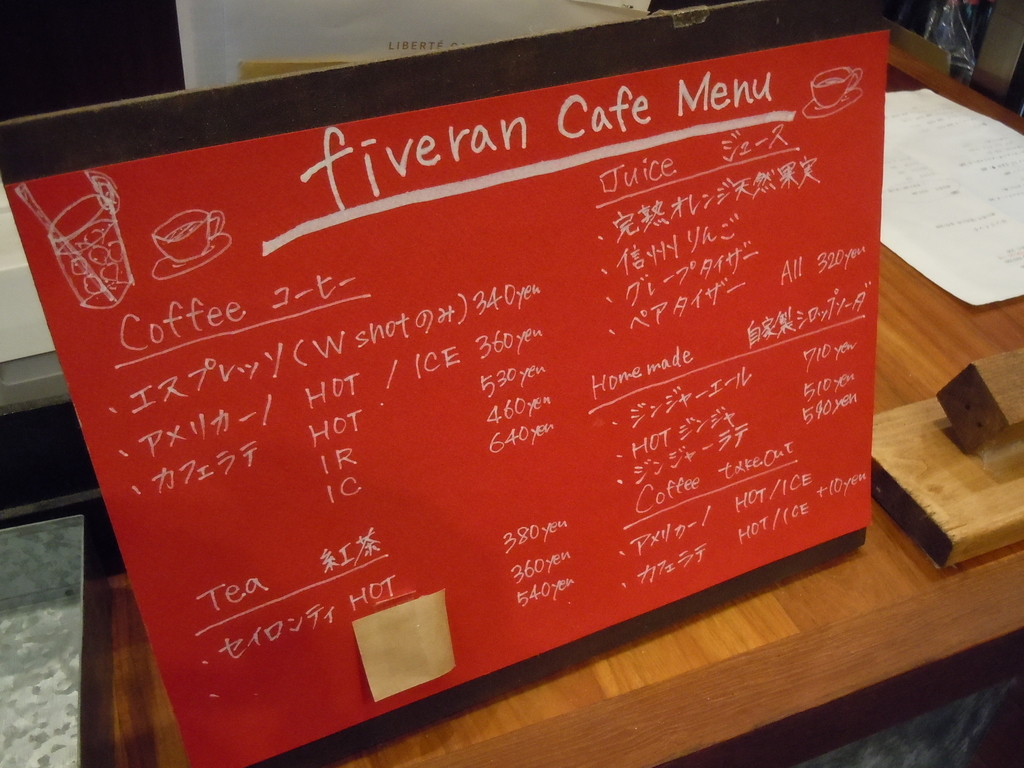 LIBERTÉ
fiveran Cafe Menu
Coffee コーヒー
・エスプレッソ(W shotのみ) 340yen
・アメリカーノ HOT / ICE 360yen
・カフェラテ HOT 530yen
IR 460yen
IC 640yen
Tea 紅茶
・セイロンティ HOT 380yen
・ 360yen
540yen
Juice ジュース
・完熟オレンジ天然果実
・信州りんご
・グレープタイザー
・ペアタイザー All 320yen
Homemade 自家製シロップソーダ
・ジンジャーエール 710yen
・HOTジンジャ 510yen
・ジンジャーラテ 590yen
Coffee takeout
・アメリカーノ HOT/ICE +10yen
・カフェラテ HOT/ICE